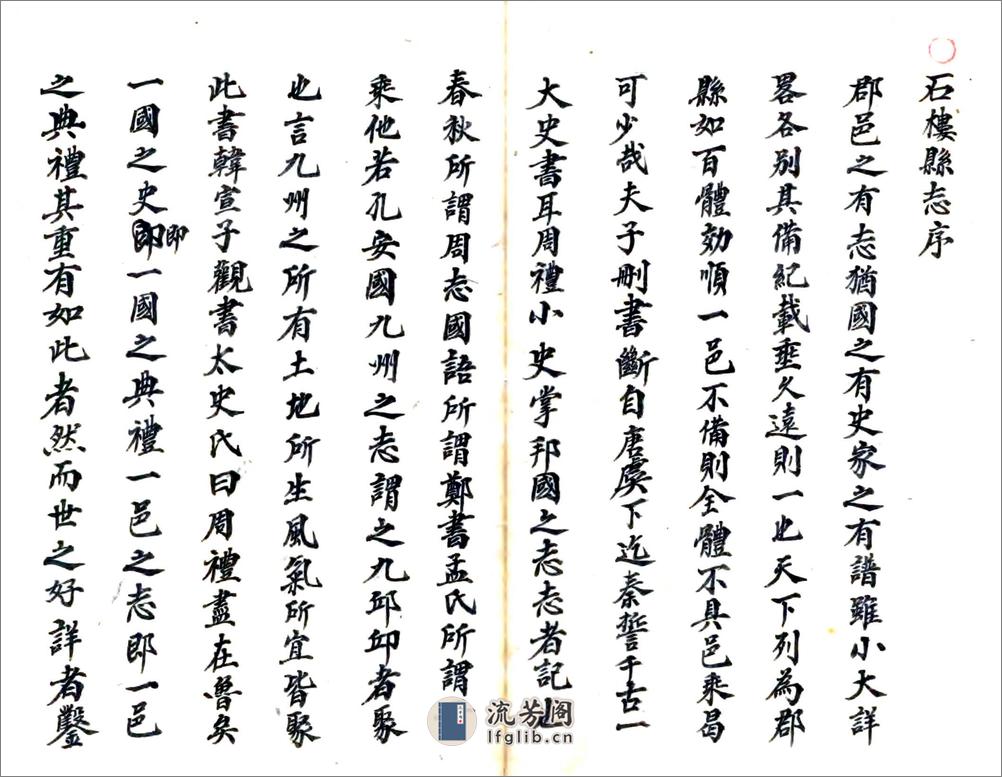 石樓縣志序
郡邑之有志猶國之有史家之有譜雖小大詳
畧各別其備紀載垂久遠則一也天下列為郡
縣如百體効順一邑不備則全體不具邑乘曷
可少哉夫子刪書斷自唐虞下迄秦誓千古一
大史書耳周禮小史掌邦國之志志者記也
春秋所謂周志國語所謂鄭書孟氏所謂
乘他若孔安國九州之志謂之九邱邱者聚
也言九州之所有土地所生風氣所宜皆聚
此書韓宣子觀書太史氏曰周禮盡在魯矣
一國之史即即一國之典禮一邑之志即一邑
之典禮其重有如此者然而世之好詳者鑿
流芳阁
lfglib.cn